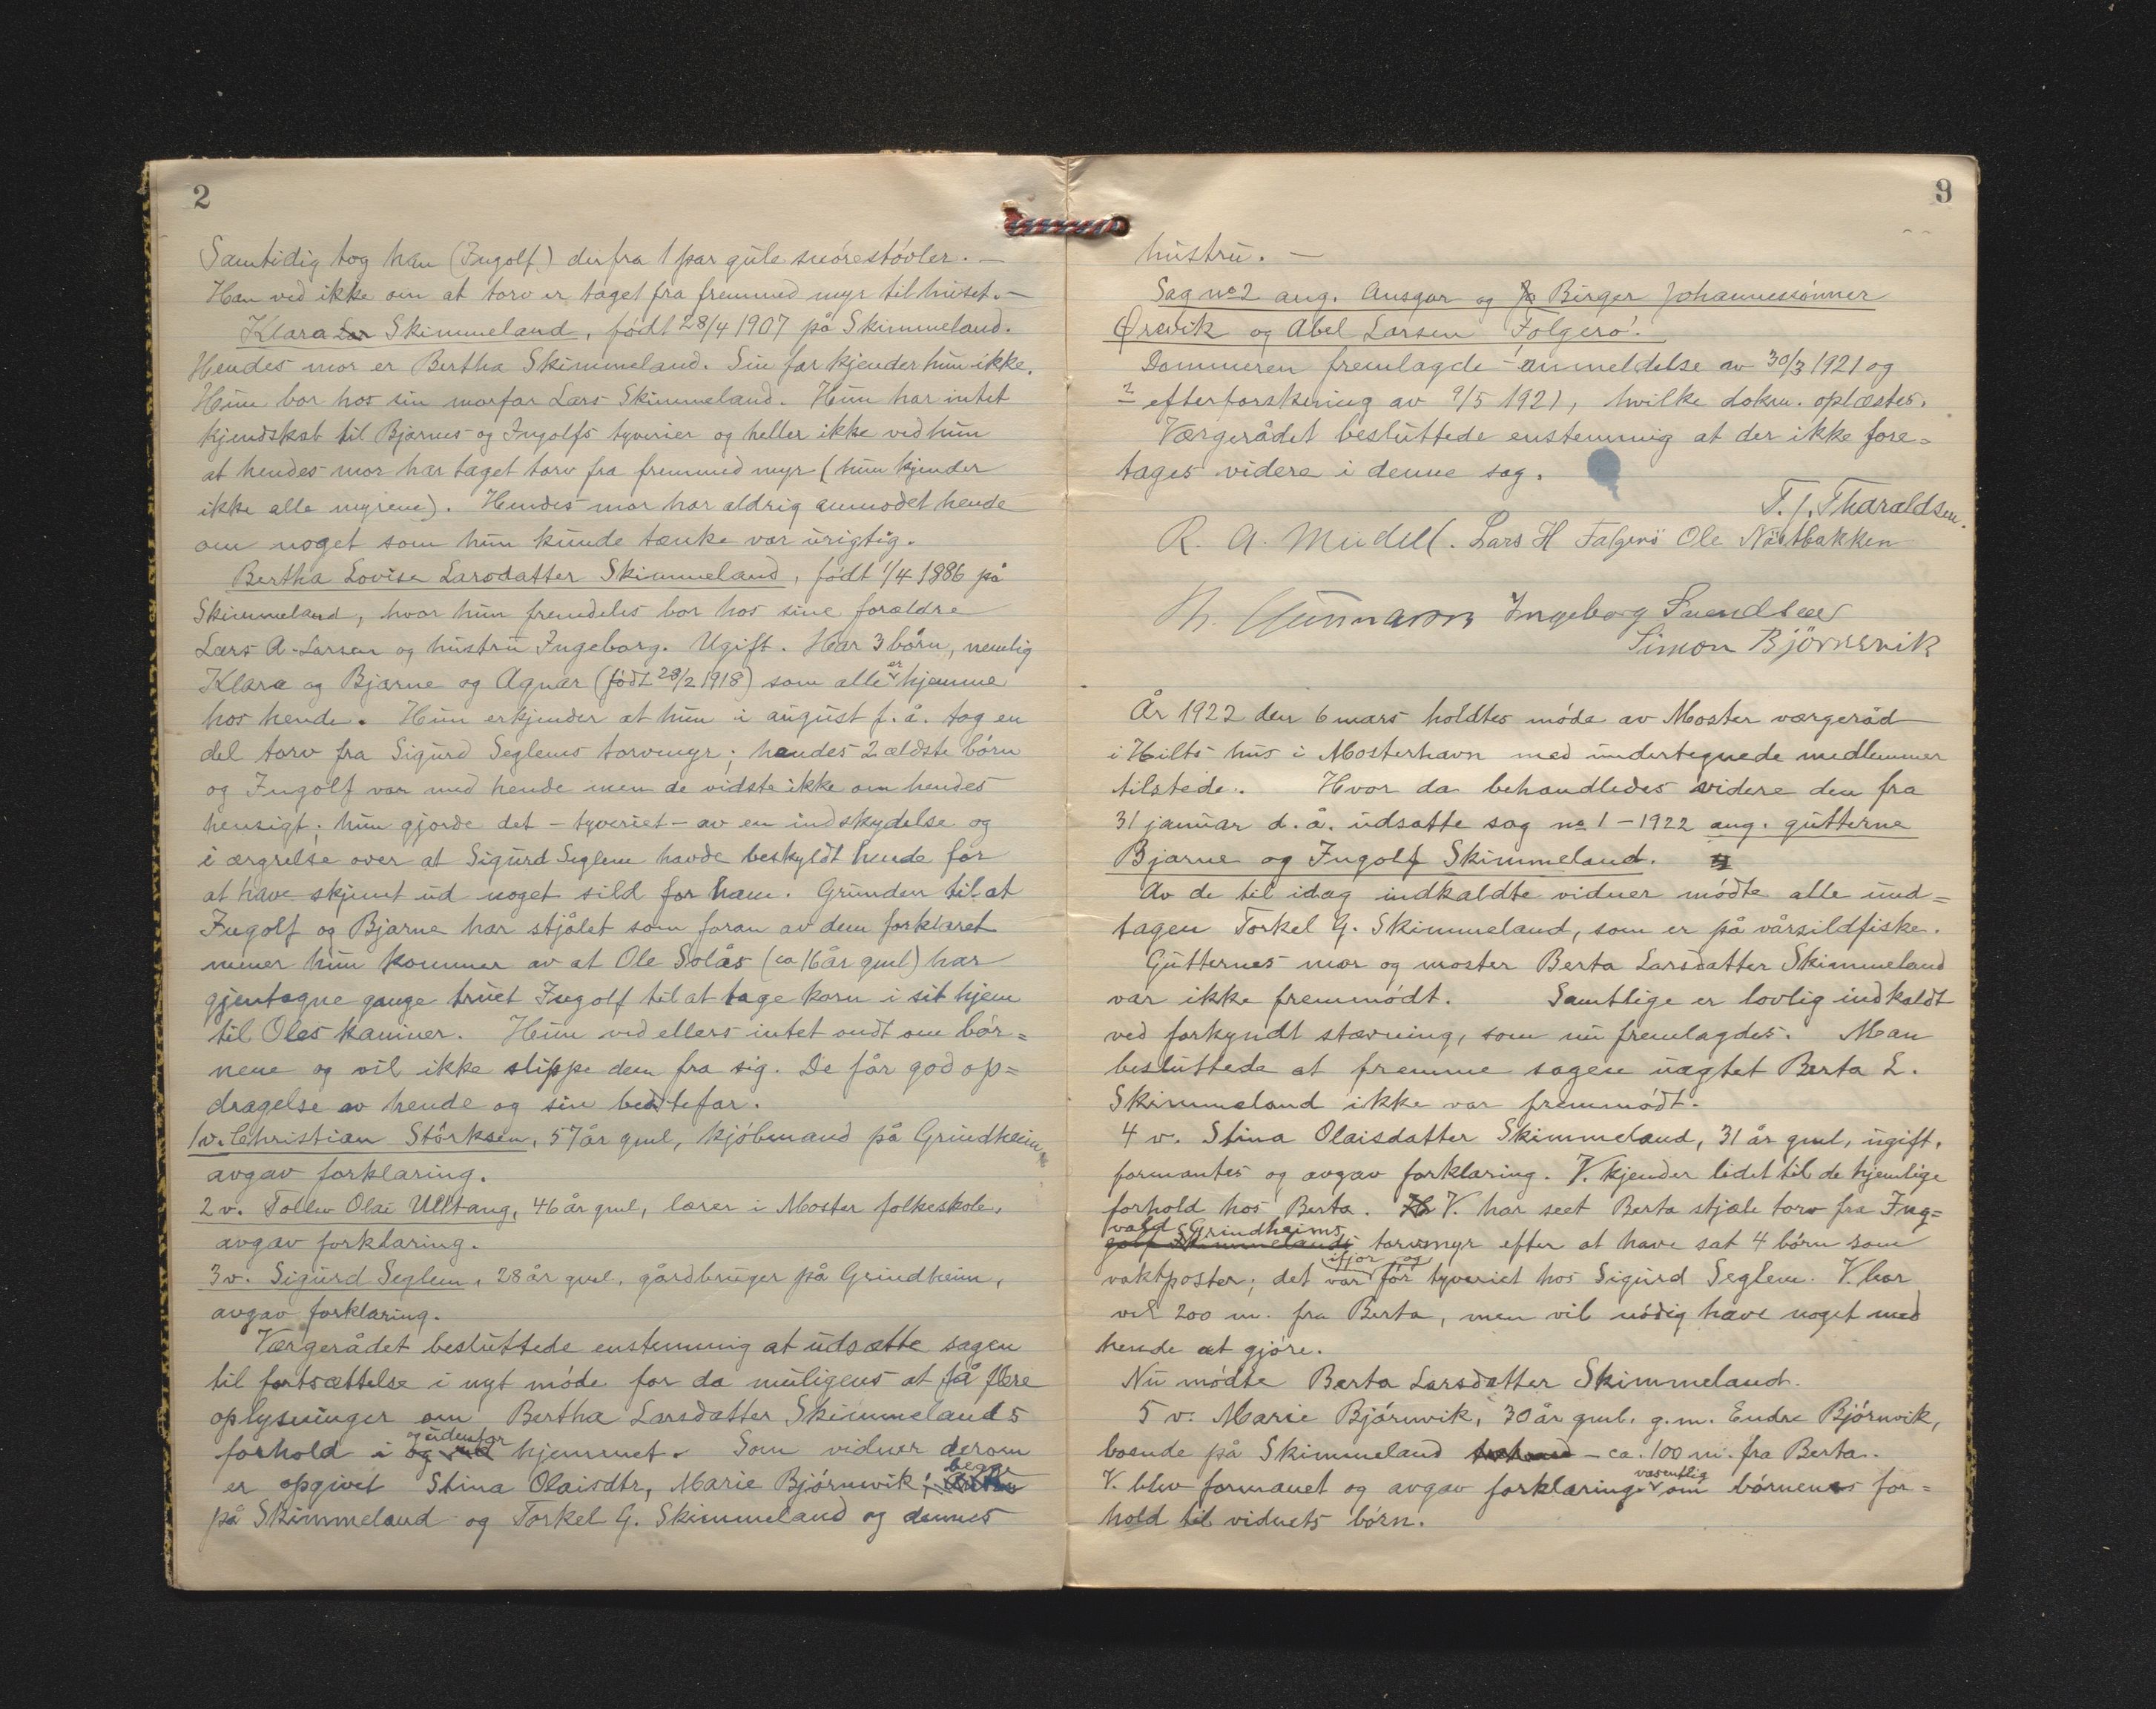 2
Samtidig tog han (Ingolf) derfra 1 par gule snórestóvler. —
Han ved ikke om at torv er taget fra fremmed myr til huset. —
Klara Skimmeland, fódt 28/4 1907 på Skimmeland.
Hendes mor er Bertha Skimmeland. Sin far kjender hun ikke.
Hun bor hos sin morfar Lars Skimmeland. Hun har intet
kjendskab til Bjarnes og Ingolfs tyverier og heller ikke ved hun
at hendes mor har taget torv fra fremmed myr (hun kjender
ikke alle myrene). Hendes mor har aldrig anmodet hende
om noget som hun kunde tænke var urigtig.
Bertha Lovise Larsdatter Skimmeland, fódt 1/4 1886 på
Skimmeland, hvor hun fremdeles bor hos sine forældre
Lars A. Larsen og hustru Ingeborg. Ugift. Har 3 bórn, nemlig
Klara og Bjarne og Agnar (fódt 28/2 1918) som alle er hjemme
hos hende. Hun erkjender at hun i august f. å. tog en
del torv fra Sigurd Seglems torvmyr; hendes 2 ældste bórn
og Ingolf var med hende men de vidste ikke om hendes
hensigt; hun gjorde det - tyveriet - av en indskydelse og
i ærgrelse over at Sigurd Seglem havde beskyldt hende for
at have skjemt ud noget sild for ham. Grunden til at
Ingolf og Bjarne har stjålet som foran av dem forklaret
mener hun kommer av at Ole Solås (ca 16 år gml) har
gjentagne gange truet Ingolf til at tage korn i sit hjem
til Oles kaniner. Hun ved ellers intet ondt om bór=
nene og vil ikke slippe dem fra sig. De får god op=
dragelse av hende og sin bedstefar.
1 v. Christian Störksen, 57 år gml, kjóbmand på Grindheim
avgav forklaring.
2 v. Tollev Olai Ulltang, 46 år gml, lærer i Moster folkeskole,
avgav forklaring.
3 v. Sigurd Seglem, 28 år gml. gårdbruger på Grindheim,
avgav forklaring.
Værgerådet besluttede enstemmig at udsætte sagen
til fortsættelse i nyt móde for da muligens at få flere
oplysninger om Bertha Larsdatter Skimmelands
forhold i og udenfor hjemmet. Som vidner derom
er opgivet Stina Olaisdtr, Marie Bjórnevik, begge
på Skimmeland og Torkel G. Skimmeland og dennes
3
hustru. —
Sag no 2 ang. Ansgar og Birger Johannessónner
Ørevik og Abel Larsen Folgeró.
Dommeren fremlagde anmeldelse av 30/3 1921 og
efterforskning av 9/5 1921, hvilke dokm. oplæstes.
Værgerådet besluttede enstemmig at der ikke fore=
tages videre i denne sag.
T. J. Tharaldsen.
R. A. Lars H Falgerö Ole Nästbakken
Gunnarson Ingeborg Svendsen
Simon Björnevik
År 1922 den 6 mars holdtes móde av Moster værgeråd
i Hilts hus i Mosterhavn med undertegnede medlemmer
tilstede. Hvor da behandledes videre den fra
31 januar d. å. udsatte sag no 1 - 1922 ang. gutterne
Bjarne og Ingolf Skimmeland.
Av de til idag indkaldte vidner módte alle und=
tagen Torkel G. Skimmeland, som er på vårsildfiske.
Gutternes mor og moster Berta Larsdatter Skimmeland
var ikke fremmódt. Samtlige er lovlig indkaldt
ved forkyndt stævning, som nu fremlagdes. Man
besluttede at fremme sagen uagtet Berta L.
Skimmeland ikke var fremmódt.
4 v. Stina Olaisdatter Skimmeland, 31 år gml, ugift,
formantes og avgav forklaring. V. kjender lidet til de hjemlige
forhold hos Berta. V. har seet Berta stjæle torv fra Ing=
vald Grindheims torvmyr efter at have sat 4 bórn som
vaktposter; det var ifjor og fór tyveriet hos Sigurd Seglem. V. bor
vel 200 m. fra Berta, men vil nódig have noget med
hende at gjóre.
Nu módte Berta Larsdatter Skimmeland.
5 v. Marie Bjórnvik, 30 år gml. g.m. Endre Bjórnvik,
boende på Skimmeland - ca. 100 m. fra Berta.
V. blev formanet og avgav forklaring væsentlig om bórnenes for=
hold til vidnets bórn.